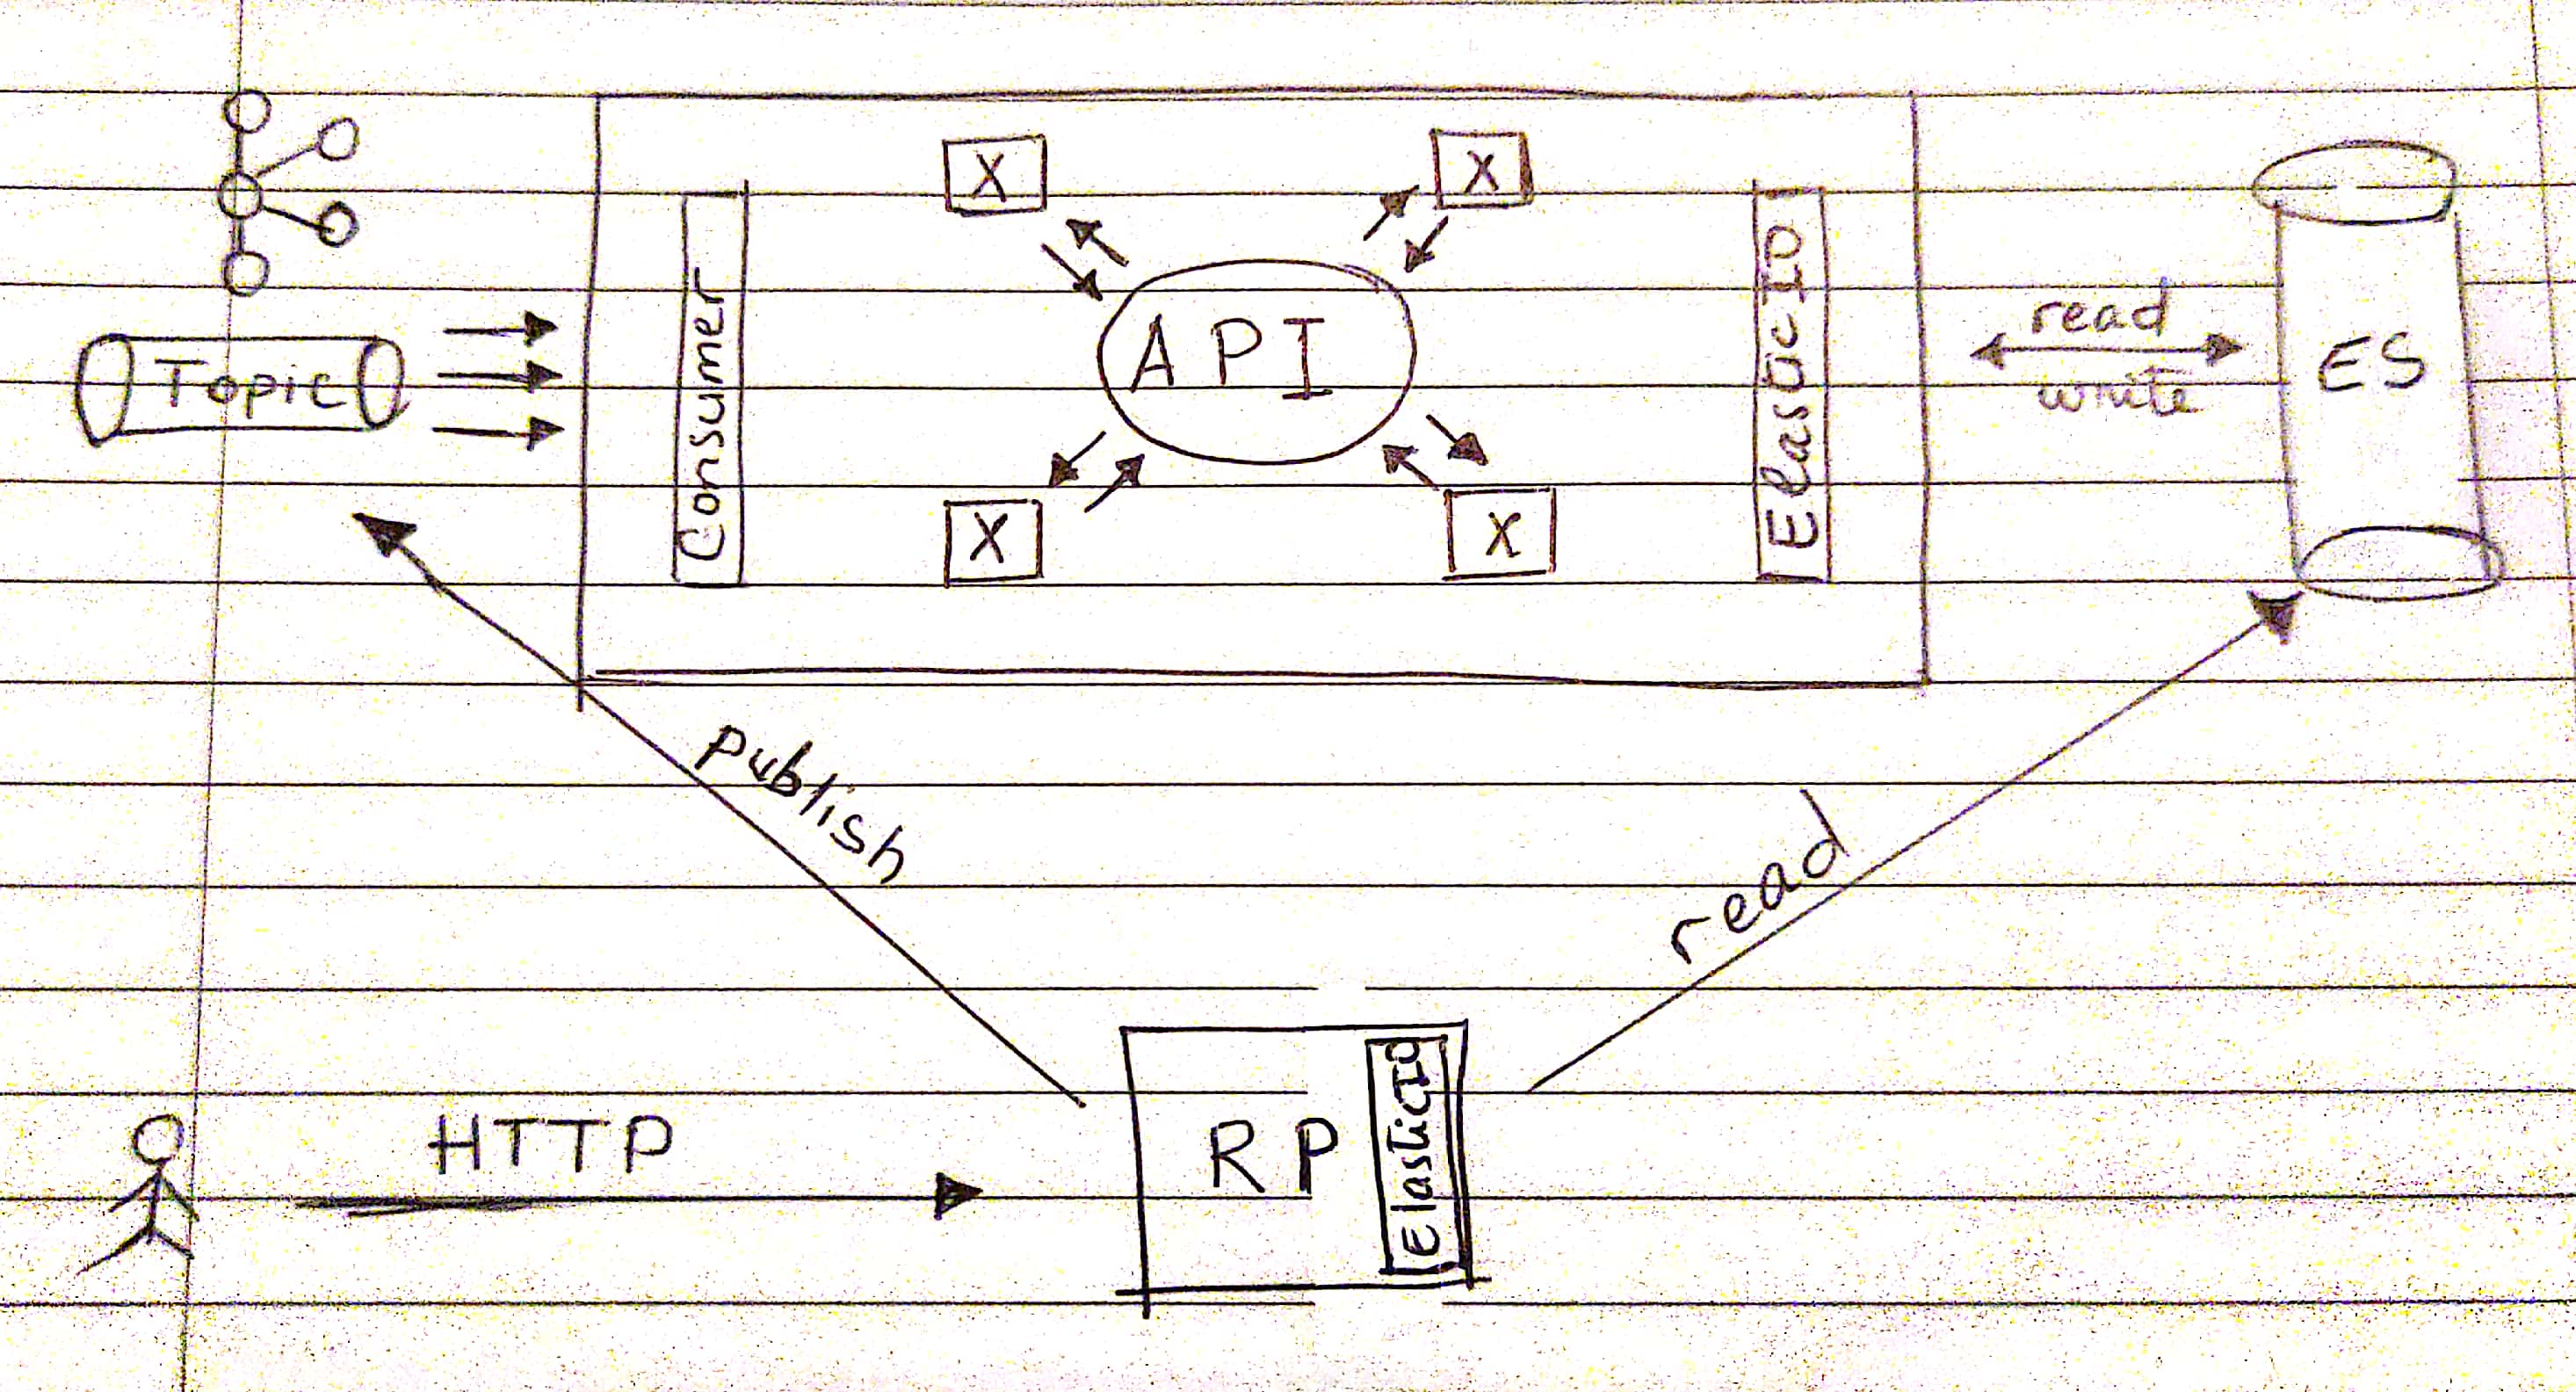 X
X
Topic
Consumer
API
Elastic IO
read
write
ES
X
X
publish
read
HTTP
RP
Elastic IO